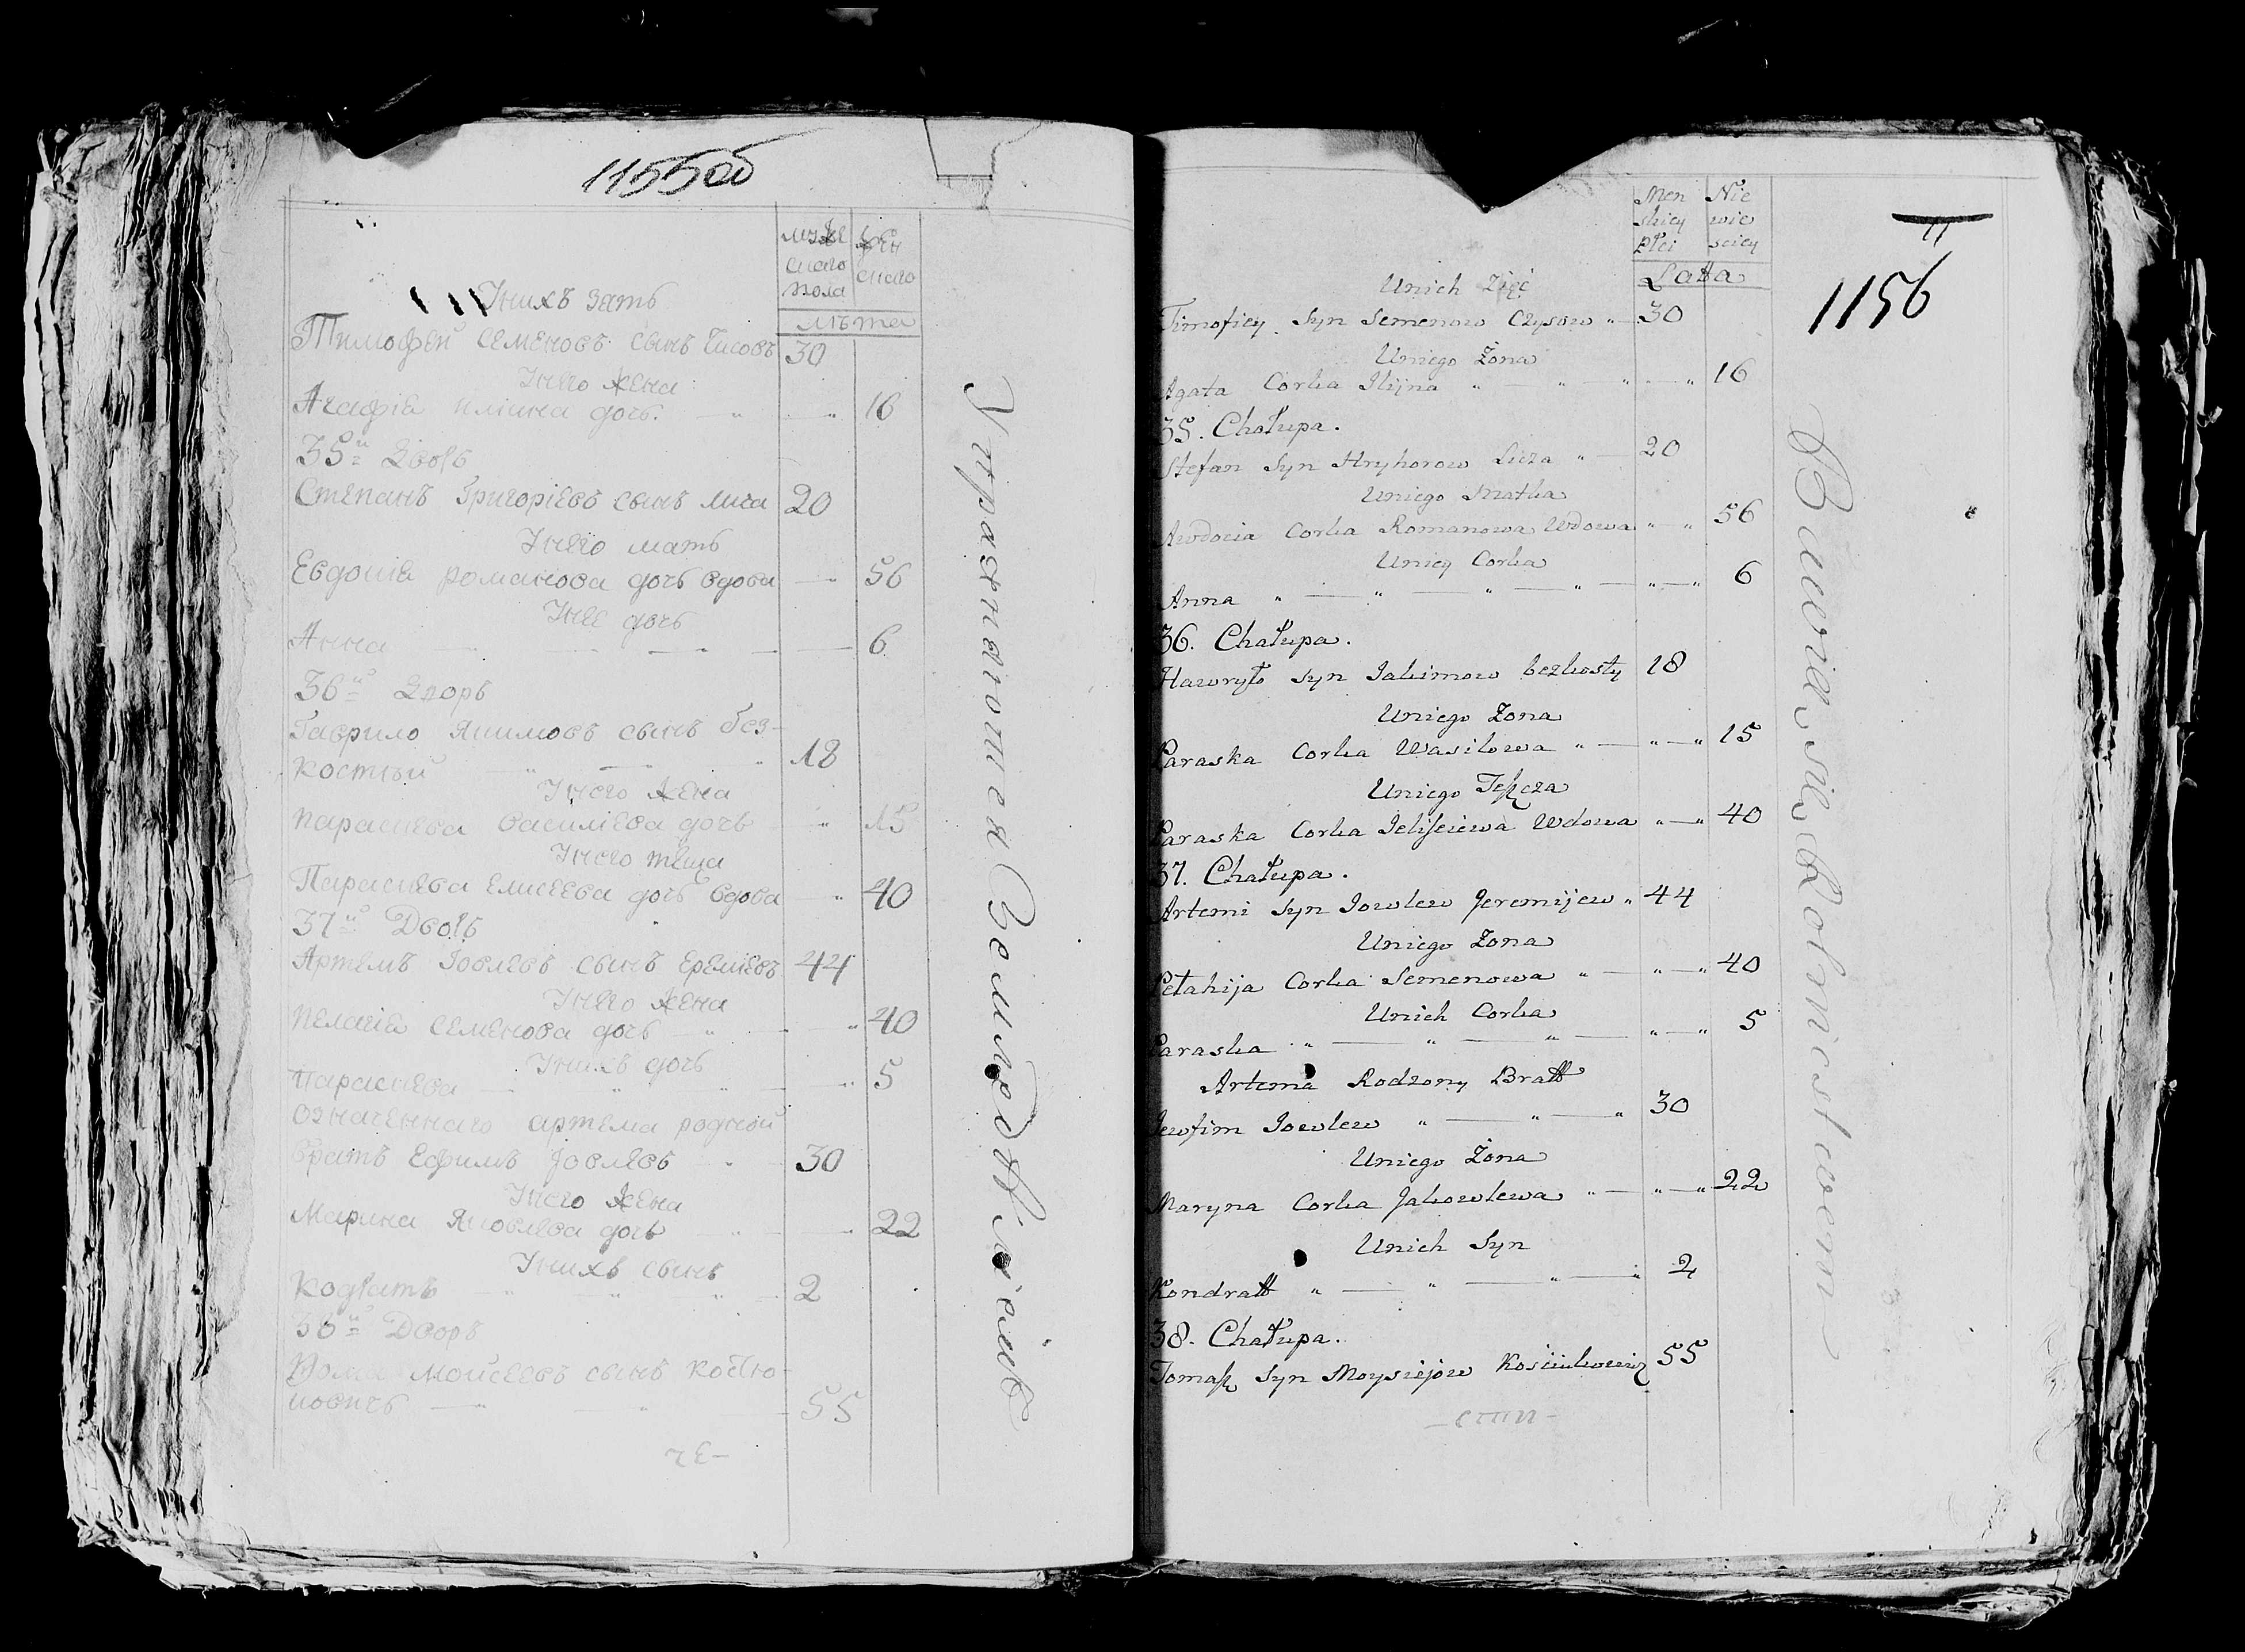 1155об
муже
скаго
пола
жен
скаго
лѣта
Унихъ зать
Тимофей Семеновъ сынъ Чисовъ 30
Унего жена
Агафіа иліина дочь 16
35й Дворъ
Степанъ Григоріевъ сынъ лиса 20
Унего мать
Евдокіа романова дочь вдова 56
Унее дочь
Анна 6
36й Дворъ
Гаврило Якимовъ сынъ без-
костный 18
Унего жена
Параскева василіева дочь 15
Унего теща
Параскева елисеева дочь вдова 40
37й Дворъ
Артемъ Іовлевъ сынъ еремѣевъ 44
Унего жена
Пелагіа семенова дочь 40
Унихъ дочь
Параскева 5
означеннаго артема родной
братъ Ефимъ Іовлевъ 30
Унего жена
Марина Яковлева дочь 22
Унихъ сынъ
Кодратъ 2
38й Дворъ
Фома Мойсеевъ сынъ костю-
ковичъ 55
Упражняютса Земледѣліемъ
11
1156
Men
skiey
płci
Nie
wie
sciey
Lata
Unich Zięć
Timofiey Syn Semenow Czysow 30
Uniego Żona
Agata Corka Ilijna 16
35. Chałupa.
Stefan Syn Hryhorow Liza 20
Uniego Matka
Awdocia Corka Romanowa Wdowa 56
Uniey Corka
Anna 6
36. Chałupa.
Hawryło Syn Jakimow bezkosty 18
Uniego Żona
Paraska Corka Wasilowa 15
Uniego Teszcza
Paraska Corka Jelisieiewa Wdowa 40
37. Chałupa.
Artemi Syn Jowlew Jeremijew 44
Uniego Żona
Pełahija Corka Semenowa 40
Unich Corka
Paraska 5
Artema Rodzony Bratt
Jewfim Jowlew 30
Uniego Żona
Maryna Corka Jakowlewa 22
Unich Syn
Kondratt 2
38. Chałupa.
Tomasz Syn Moysiejow Kościukowicz 55
Bawią się Rolnictwem